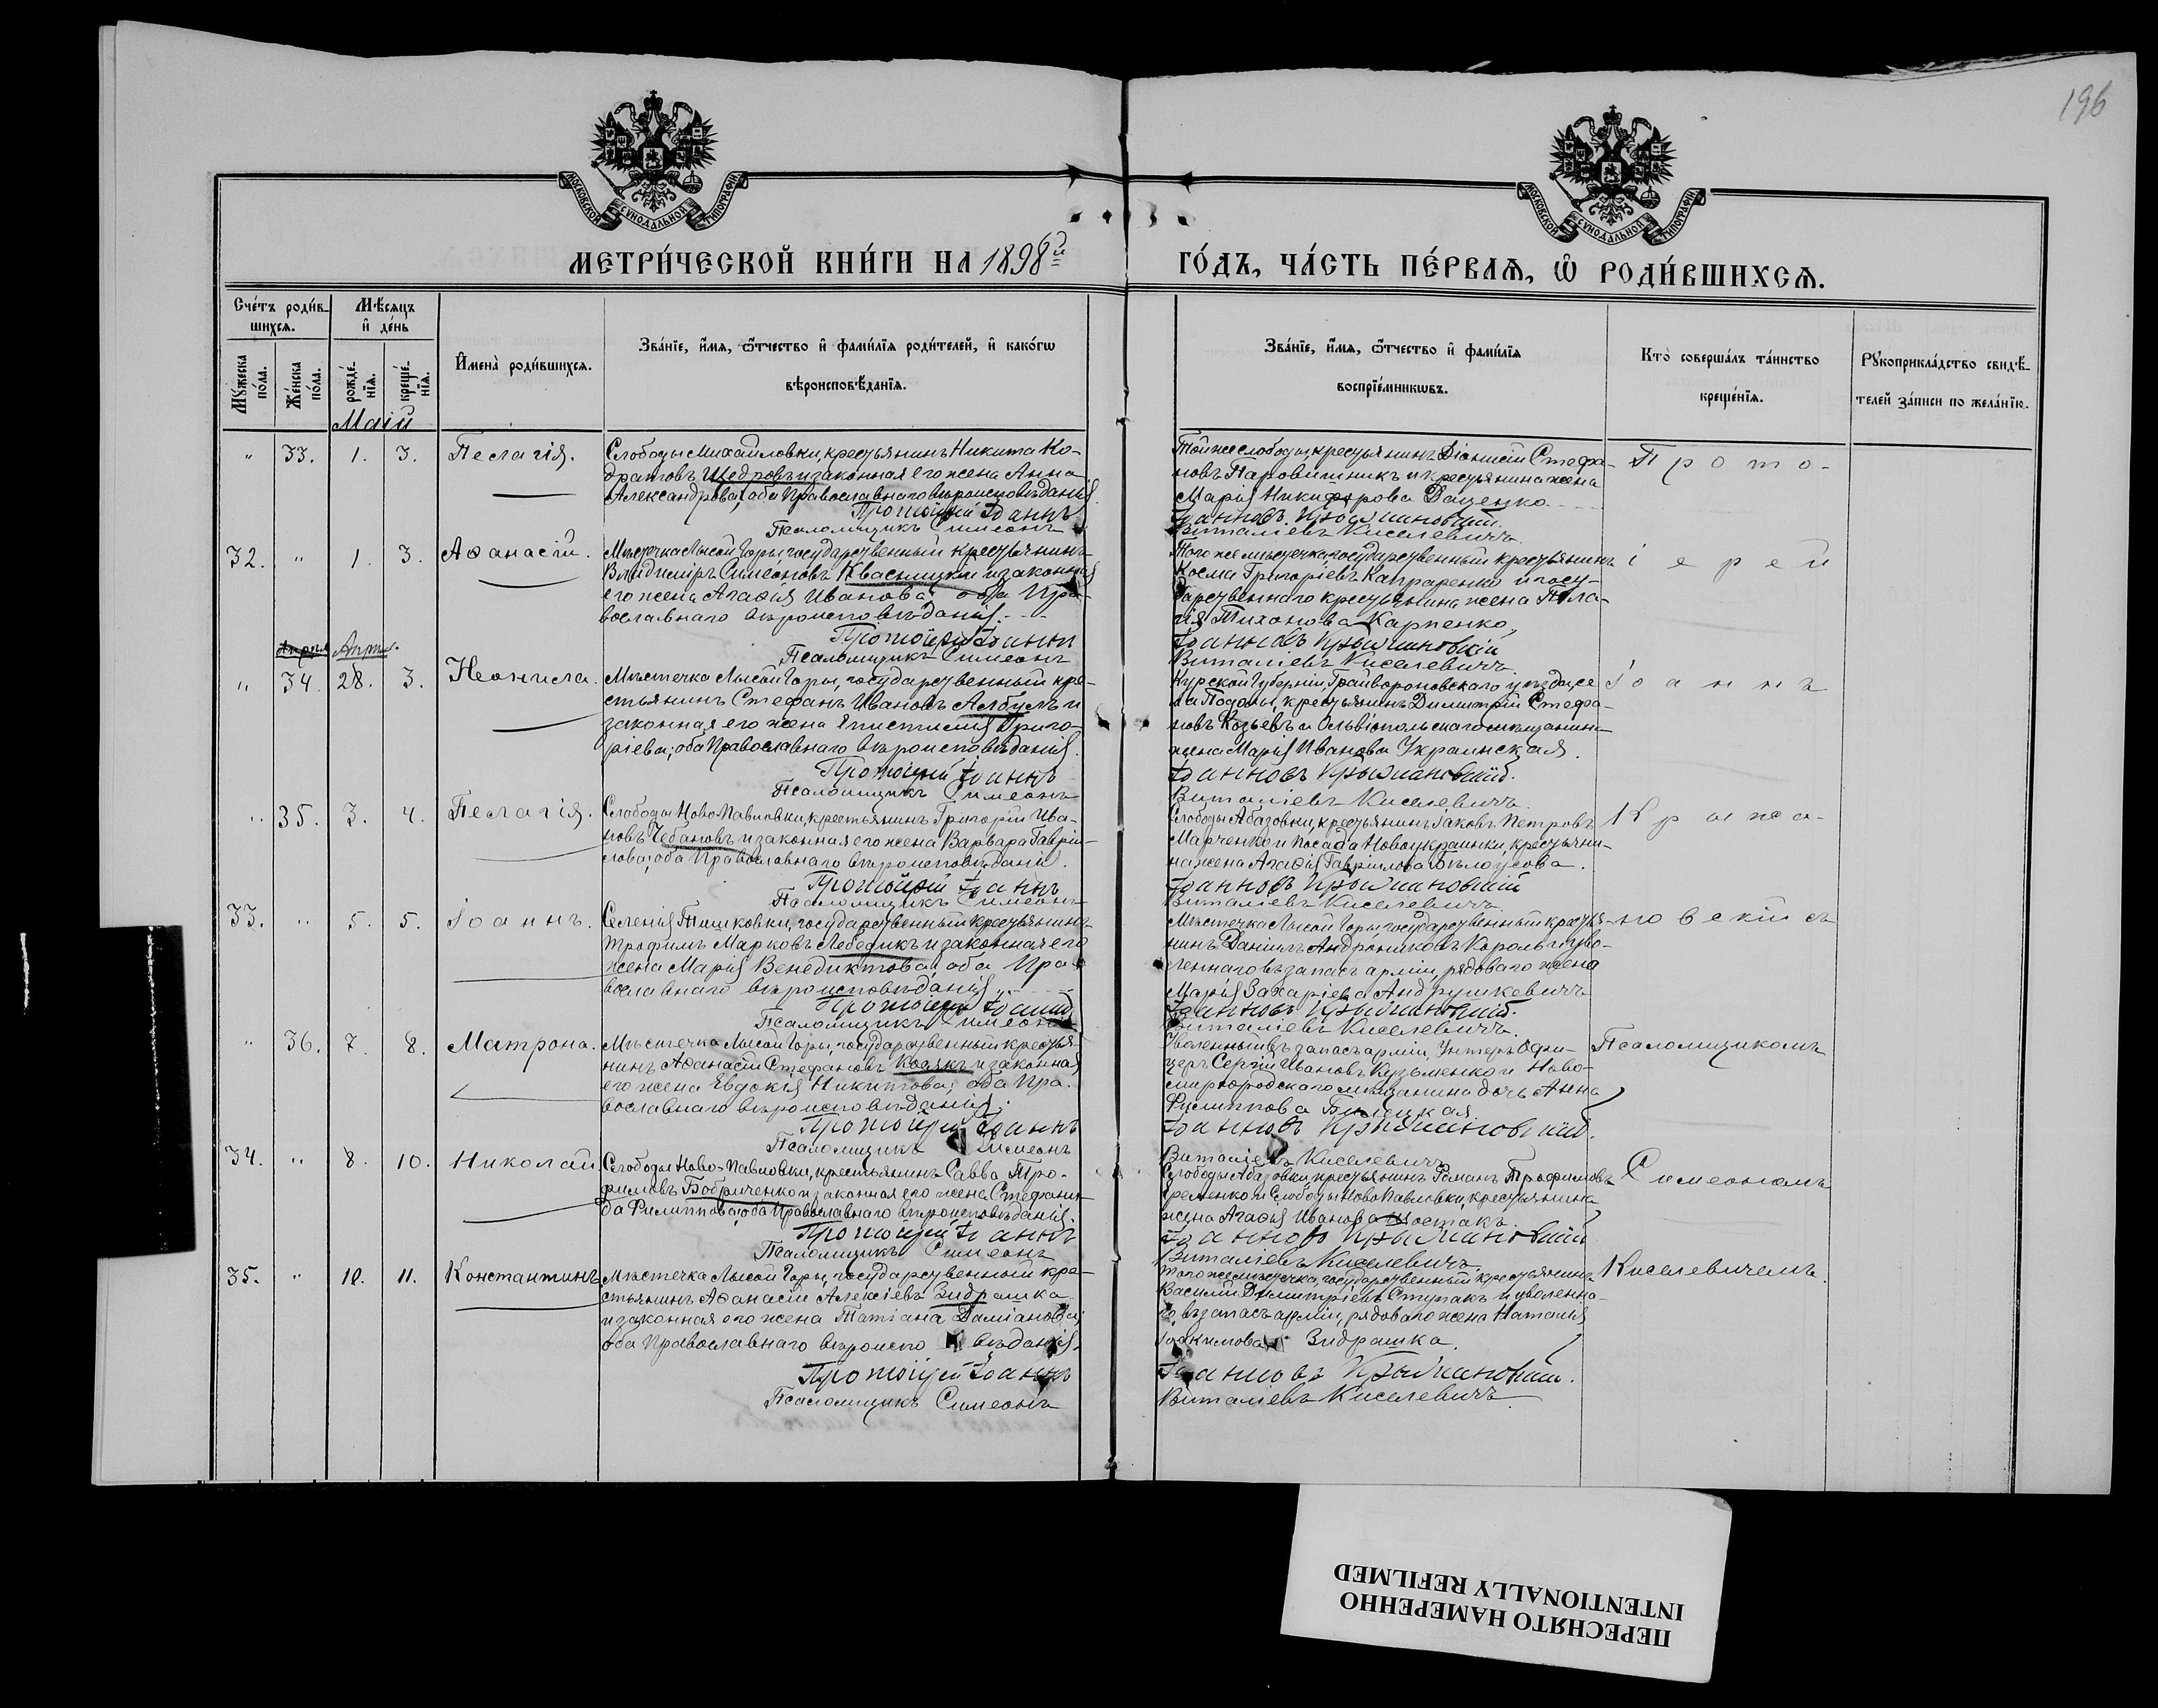 196
МОСКОВСКОЙ СѴНОДАЛЬНОЙ ТИПОГРАФІИ
МОСКОВСКОЙ СѴНОДАЛЬНОЙ ТИПОГРАФІИ
МЕТРИ́ЧЕСКОЙ КНИ́ГИ НА 1898й ГО́ДЪ, ЧА́СТЬ ПЕ́РВАѦ, Ѡ РОДИ́ВШИХСѦ.
Сче́тъ роди́в-
шихсѧ.
Мѣ́сѧцъ
и де́нь
Му́жеска
по́ла.
Же́нска
по́ла.
рожде́-
нїѧ.
креще́-
нїѧ.
Имена̀ роди́вшихсѧ.
Зва́нїе, и́мѧ, ѻ҆́тчество и фами́лїѧ роди́телей, и како́гѡ
вѣроисповѣ́данїѧ.
Зва́нїе, и́мѧ, ѻ҆́тчество и фами́лїѧ
воспрїе́мникѡвъ.
Кто̀ соверша́лъ та́инство
креще́нїѧ.
Рукоприкла́дство свидѣ́-
телей за́писи по жела́нїю.
Маій
" 33. 1. 3. Пелагія.
Слободы Михайловки, крестьянинъ Никита Ко-
дратовъ Щедровъ и законная его жена Анна
Александрова, оба Православнаго вѣроисповѣданія.
Протоіерей Іоаннъ
Псаломщикъ Симеонъ
Той же слободы, крестьянинъ Діонисій Стефа-
новъ и крестьянина жена
Марія Никифорова Даценко.
Іоанновъ Крыжановскій.
Виталіевъ Киселевичъ.
Прото-
32. " 1. 3. Аѳанасій.
Мѣстечка Лысой Горы, государственный крестьянинъ
Владиміръ Симеоновъ Квасницкій и законная
его жена Агаѳія Иванова; оба Пра-
вославнаго вѣроисповѣданія.
Протоіерей Іоаннъ
Псаломщикъ Симеонъ
Того же мѣстечка, государственный крестьянинъ
Косма Григоріевъ Капраренко и госу-
дарственнаго крестьянина жена Пела-
гія Тихонова Карпенко,
Іоанновъ Крыжановскій
Виталіевъ Киселевичъ
іерей
Апрѣл. Апрѣл.
" 34. 28. 3. Неонила.
Мѣстечка Лысой Горы, государственный кре-
стьянинъ Стефанъ Ивановъ и
законная его жена Епистимія Григо-
ріева; оба Православнаго вѣроисповѣданія.
Протоіерей Іоаннъ
Псаломщикъ Симеонъ
Курской Губерніи, Грайвороновскаго уѣзда, се
ла Подолы, крестьянинъ Димитрій Стефа-
новъ Козьевъ и Ольвіопольскаго мѣщанина
жена Марія Иванова Украинская.
Іоанновъ Крыжановскій.
Виталіевъ Киселевичъ.
Іоаннъ
" 35. 3. 4. Пелагія.
Слободы Ново Павловки, крестьянинъ Григорій Ива-
новъ Чебановъ и законная его жена Варвара Гаврии-
лова, оба Православнаго вѣроисповѣданія.
Протоіерей Іоаннъ
Псаломщикъ Симеонъ
Слободы Абазовки, крестьянинъ Іаковъ Петровъ
Марченко и Посада Новоукраинки, крестьяни-
на жена Агаѳія Гавриилова Бѣлоусова.
Іоанновъ Крыжановскій
Виталіевъ Киселевичъ.
Крыжа-
33. " 5. 5. Іоаннъ.
Селенія Тишковки, государственный крестьянинъ
Трофимъ Марковъ Лебедикъ и законная его
жена Марія Венедиктова, оба Пра-
вославнаго вѣроисповѣданія.
Протоіерей Іоаннъ
Псаломщикъ Симеонъ
Мѣстечка Лысой Горы, государственный крестья-
нинъ Даніилъ Андрониковъ Король и уво-
леннаго въ запасъ арміи, рядоваго жена
Марія Захаріева Андрушкевичъ
Іоанновъ Крыжановскій.
Виталіевъ Киселевичъ.
новскій съ
" 36. 7. 8. Матрона.
Мѣстечка Лысой Горы, государственный крестья-
нинъ Аѳанасій Стефановъ и законная
его жена Евдокія Никитова; оба Пра-
вославнаго вѣроисповѣданія;
Протоіерей Іоаннъ
Псаломщикъ Симеонъ
Уволенный въ запасъ арміи, Унтеръ Офи-
церъ Сергій Ивановъ Кузьменко и Ново-
миргородскаго мѣщанина дочь Анна
Филиппова
Іоанновъ Крыжановскій.
Виталіевъ Киселевичъ
Псаломщикомъ
34. " 8. 10. Николай
Слободы Ново-Павловки, крестьянинъ Савва Тро-
фимовъ Бобриченко и законная его жена Стефани-
да Филиппова; оба Православнаго вѣроисповѣданія.
Протоіерей Іоаннъ
Псаломщикъ Симеонъ
Слободы Абазовки, крестьянинъ Романъ Трофимовъ
Еременко и Слободы Ново Павловки, крестьянина
жена Агаѳія Иванова Шостакъ.
Іоанновъ Крыжановскій
Виталіевъ Киселевичъ
Симеономъ
35. " 10. 11. Константинъ
Мѣстечка Лысой Горы, государственный кре-
стьянинъ Аѳанасій Алексіевъ Зидрашка
и законная его жена Татіана Даміанова;
оба Православнаго вѣроисповѣданія.
Протоіерей Іоаннъ
Псаломщикъ Симеонъ
Того же мѣстечка, государственный крестьянинъ
Василій Димитріевъ Ступакъ и уволенна-
го въ запасъ арміи, рядоваго жена Наталія
Іоакимова Зидрашка.
Іоанновъ Крыжановскій.
Виталіевъ Киселевичъ
Киселевичемъ.
ПЕРЕСНЯТО НАМЕРЕННО
INTENTIONALLY REFILMED